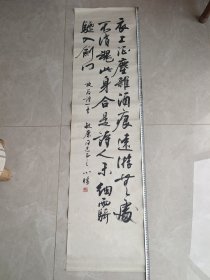 衣上征塵雜酒痕遠游無處
不消魂此身合是詩人未細雨騎
驢入劍門
同志